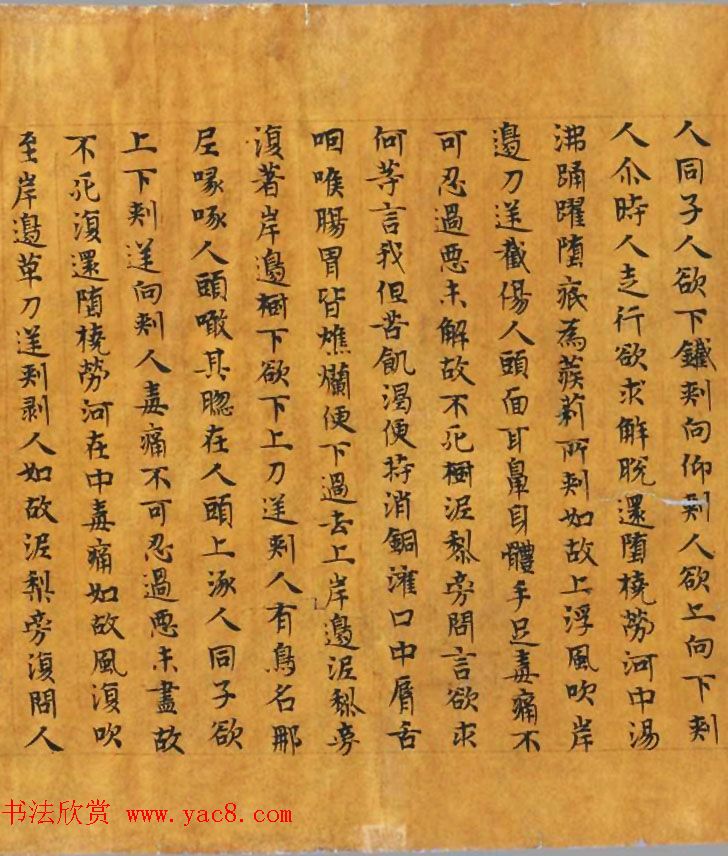 人同子人欲下鐵刾向仰刾人欲上向下刾
人尒時人走行欲求解脫還堕橈勞河中湯
沸踊躍堕底為蒺莿所刾如故上浮風吹岸
邊刀逆截傷人頭面耳鼻身體手足毒痛不
可忍過惡未解故不死樹泥梨旁問言欲求
何等言我但苦飢渴便持消銅灌口中脣舌
咽喉腸胃皆燋爛便下過去上岸邊泥梨旁
復著岸邊樹下欲下上刀逆刾人有鳥名那
喙啄人頭噉其腦在人頭上啄人同子欲
上下刾逆向刾人毒痛不可忍過惡未盡故
不死復還堕橈勞河在中毒痛如故風復吹
至岸邊草刀逆刾剥人如故泥梨旁復問人
书法欣赏 www.yac8.com